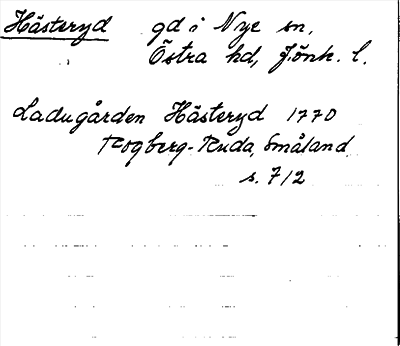 Hästeryd gd i Nye sn,
Östra hd, Jönk. l.
Ladugården Hästeryd 1770
Rogberg-Ruda, Småland
s. 712